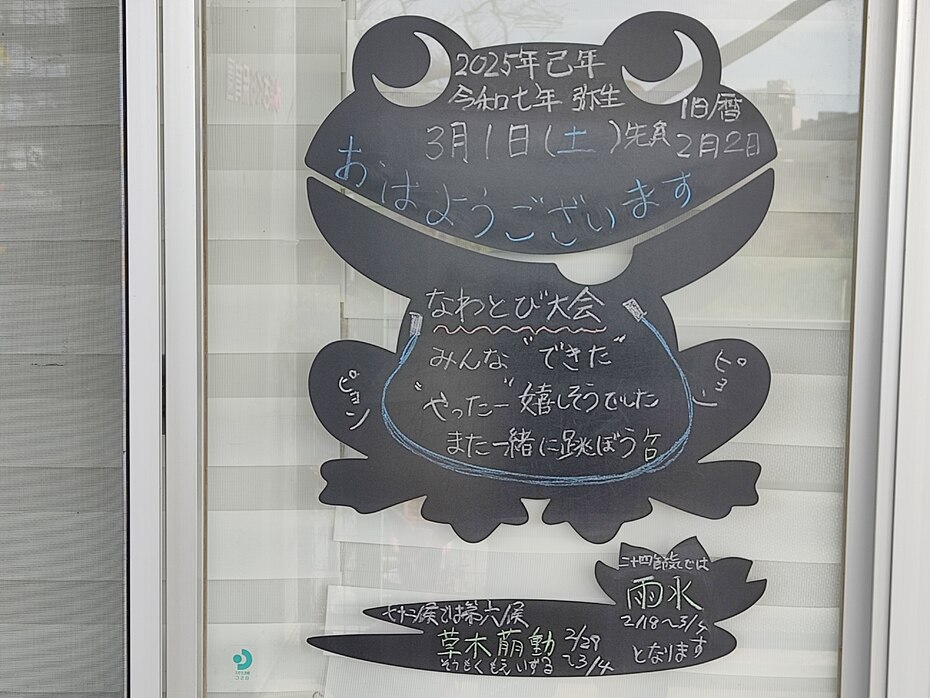 2025年 己年
令和七年 弥生
3月1日(土)先負
旧暦
2月2日
おはようございます
なわとび大会
みんな"できた"
"やったー"嬉しそうでした
また一緒に跳ぼうケロ
ピョン
ピョン
二十四節気では
雨水
2/18～3/4
となります
七十二候では第六候
草木萌動
そうもくもえいずる
2/29
～3/4